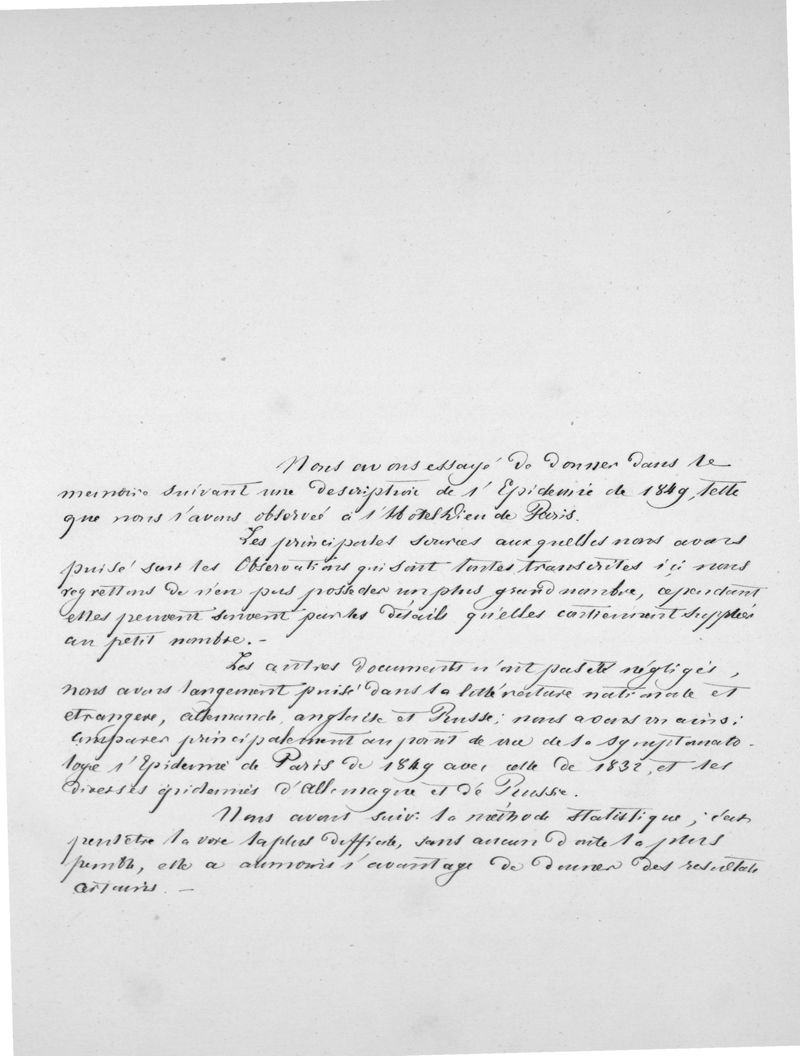 Nous avons essayé de donner dans le
memoire suivant une description de l'Epidemie de 1849, telle
que nous l'avons observeé à l'Hotel Dieu de Paris.
Les principales sources auxquelles nous avons
puisé sont les Observations qui sont toutes transcrites içi nous
regrettons de n'en pas posseder un plus grand nombre, cependant
elles peuvent souvent par les détails qu'elles contiennent suppléer
au petit nombre. -
Les autres documents n'ont pas eté négligés,
nous avons largement puisé dans la littérature nationale et
etrangere, allemande, anglaise et Russe; nous avons vu ainsi
comparer principalement au point de vue de la symptomato-
logie l'Epidemie de Paris de 1849 avec celle de 1832, et les
diverses épidemies d'Allemagne et de Russie.
Nous avons suivi la méthode statistique; c'est
peutêtre la voie la plus difficile, sans aucun doute la plus
penible, elle a aumoins l'avantage de donner des resultats
certains. -